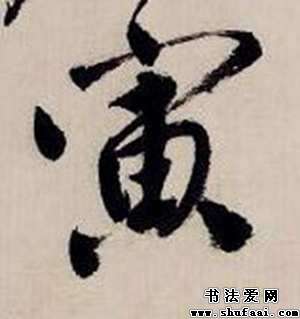 寅
书法爱网
www.shufaai.com